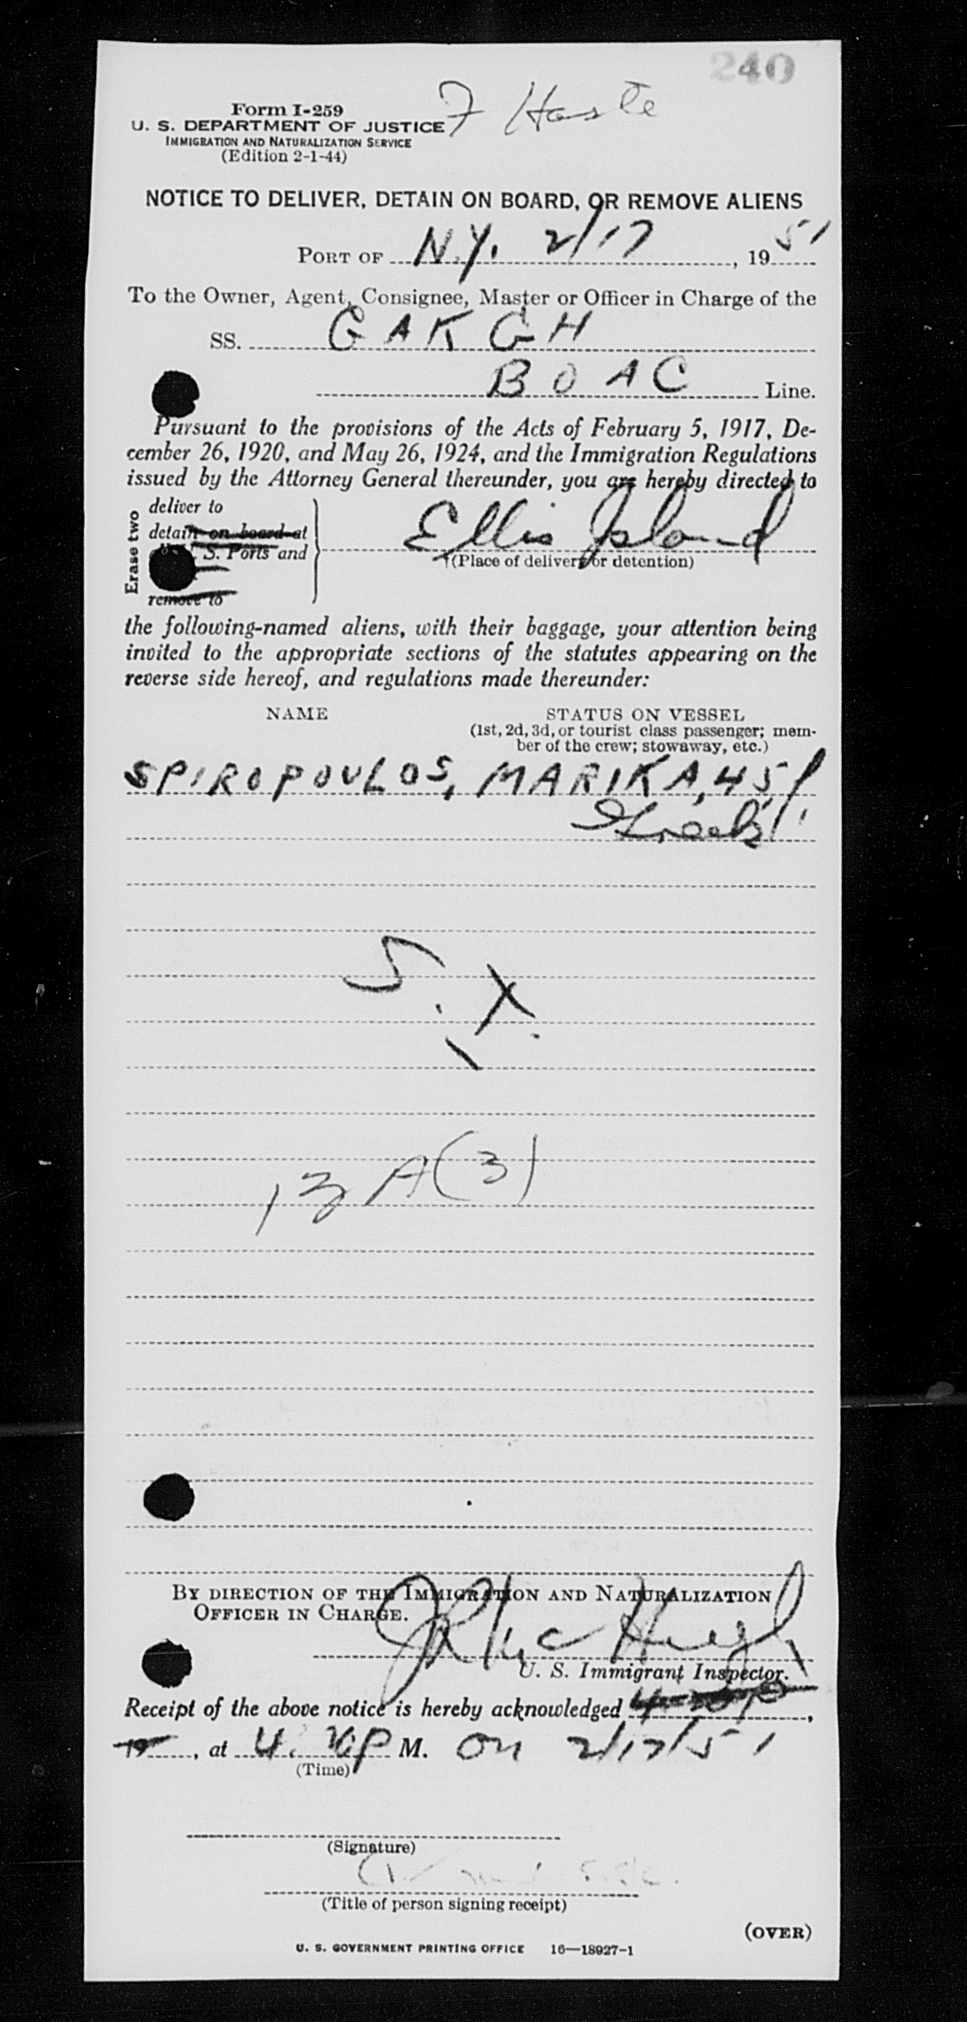 240
Form I-259
U. S. DEPARTMENT OF JUSTICE
IMMIGRATION AND NATURALIZATION SERVICE
(Edition 2-1-44)
NOTICE TO DELIVER, DETAIN ON BOARD, OR REMOVE ALIENS
PORT OF N.Y. 2/17, 1951
To the Owner, Agent, Consignee, Master or Officer in Charge of the
SS. GAKGH
BOAC Line.
Pursuant to the provisions of the Acts of February 5, 1917, De-
cember 26, 1920, and May 26, 1924, and the Immigration Regulations
issued by the Attorney General thereunder, you are hereby directed to
Erase two
deliver to
detain on board at
S. Ports and
remove to
Ellis Island
(Place of delivery or detention)
the following-named aliens, with their baggage, your attention being
invited to the appropriate sections of the statutes appearing on the
reverse side hereof, and regulations made thereunder:
NAME STATUS ON VESSEL
(1st, 2d, 3d, or tourist class passenger; mem-
ber of the crew; stowaway, etc.)
SPIROPOULOS, MARIKA, 45,
Greek
S. X.
13 A (3)
BY DIRECTION OF THE IMMIGRATION AND NATURALIZATION
OFFICER IN CHARGE.
U. S. Immigrant Inspector.
Receipt of the above notice is hereby acknowledged
19, at 4. P M. on 2/17/51
(Time)
(Signature)
(Title of person signing receipt)
(OVER)
U. S. GOVERNMENT PRINTING OFFICE 16—18927-1